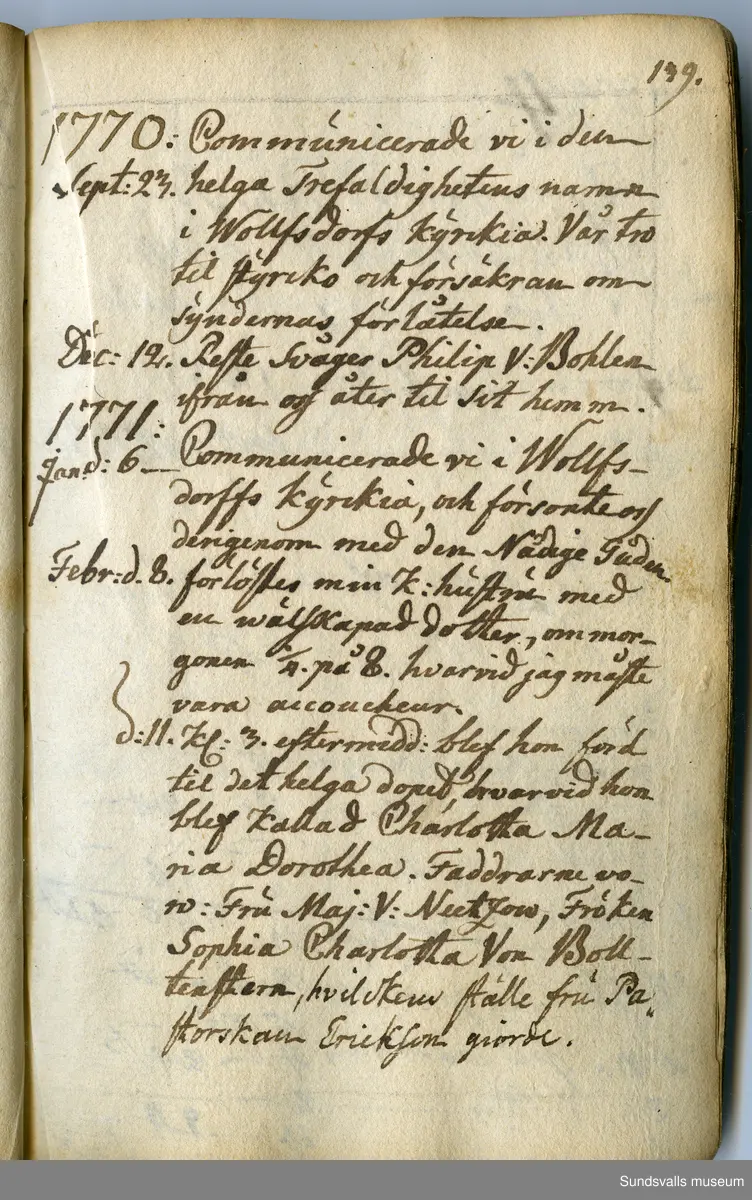 139.
1770: Communicerade vi i den
Sept: 23. helga Trefaldighetens namn
i Wollfsdorfs kÿrckia. Vår tro
til stÿrcko och försäkran om
sÿndernas förlåtelse.
Dec: 12. Reste Svåger Philip V: Bohlen
ifrån oss åter til sit hemm.
1771:
Jan: d: 6 Communicerade vi i Wollfs-
dorffs kÿrckia, och försonte oss
derigenom med den Nådige Guden
Febr: d. 8. förlöstes min K: hustru med
en wälskapad dotter, om mor-
gonen ¼. på 8. hvarvid jag måste
vara accoucheur.
d: 11. Kl: 3. eftermidd: blef hon förd
til det helga dopet, hvarvid hon
blef kallad Charlotta Ma-
ria Dorothea. Faddrarne vo-
ro: Fru Maj: V: Neetzow, Fröken
Sophia Charlotta Von Boll-
tenstern, hvilckens ställe fru Pa-
storskan Erickson giorde.
Sundsvalls museum